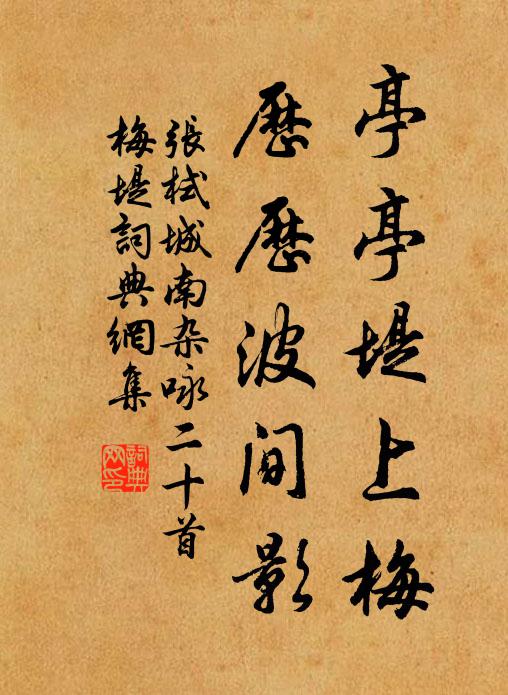 亭亭堤上梅
歷歷波间影
張栻城南杂咏二十首
梅堤詞典網集
詞典網印